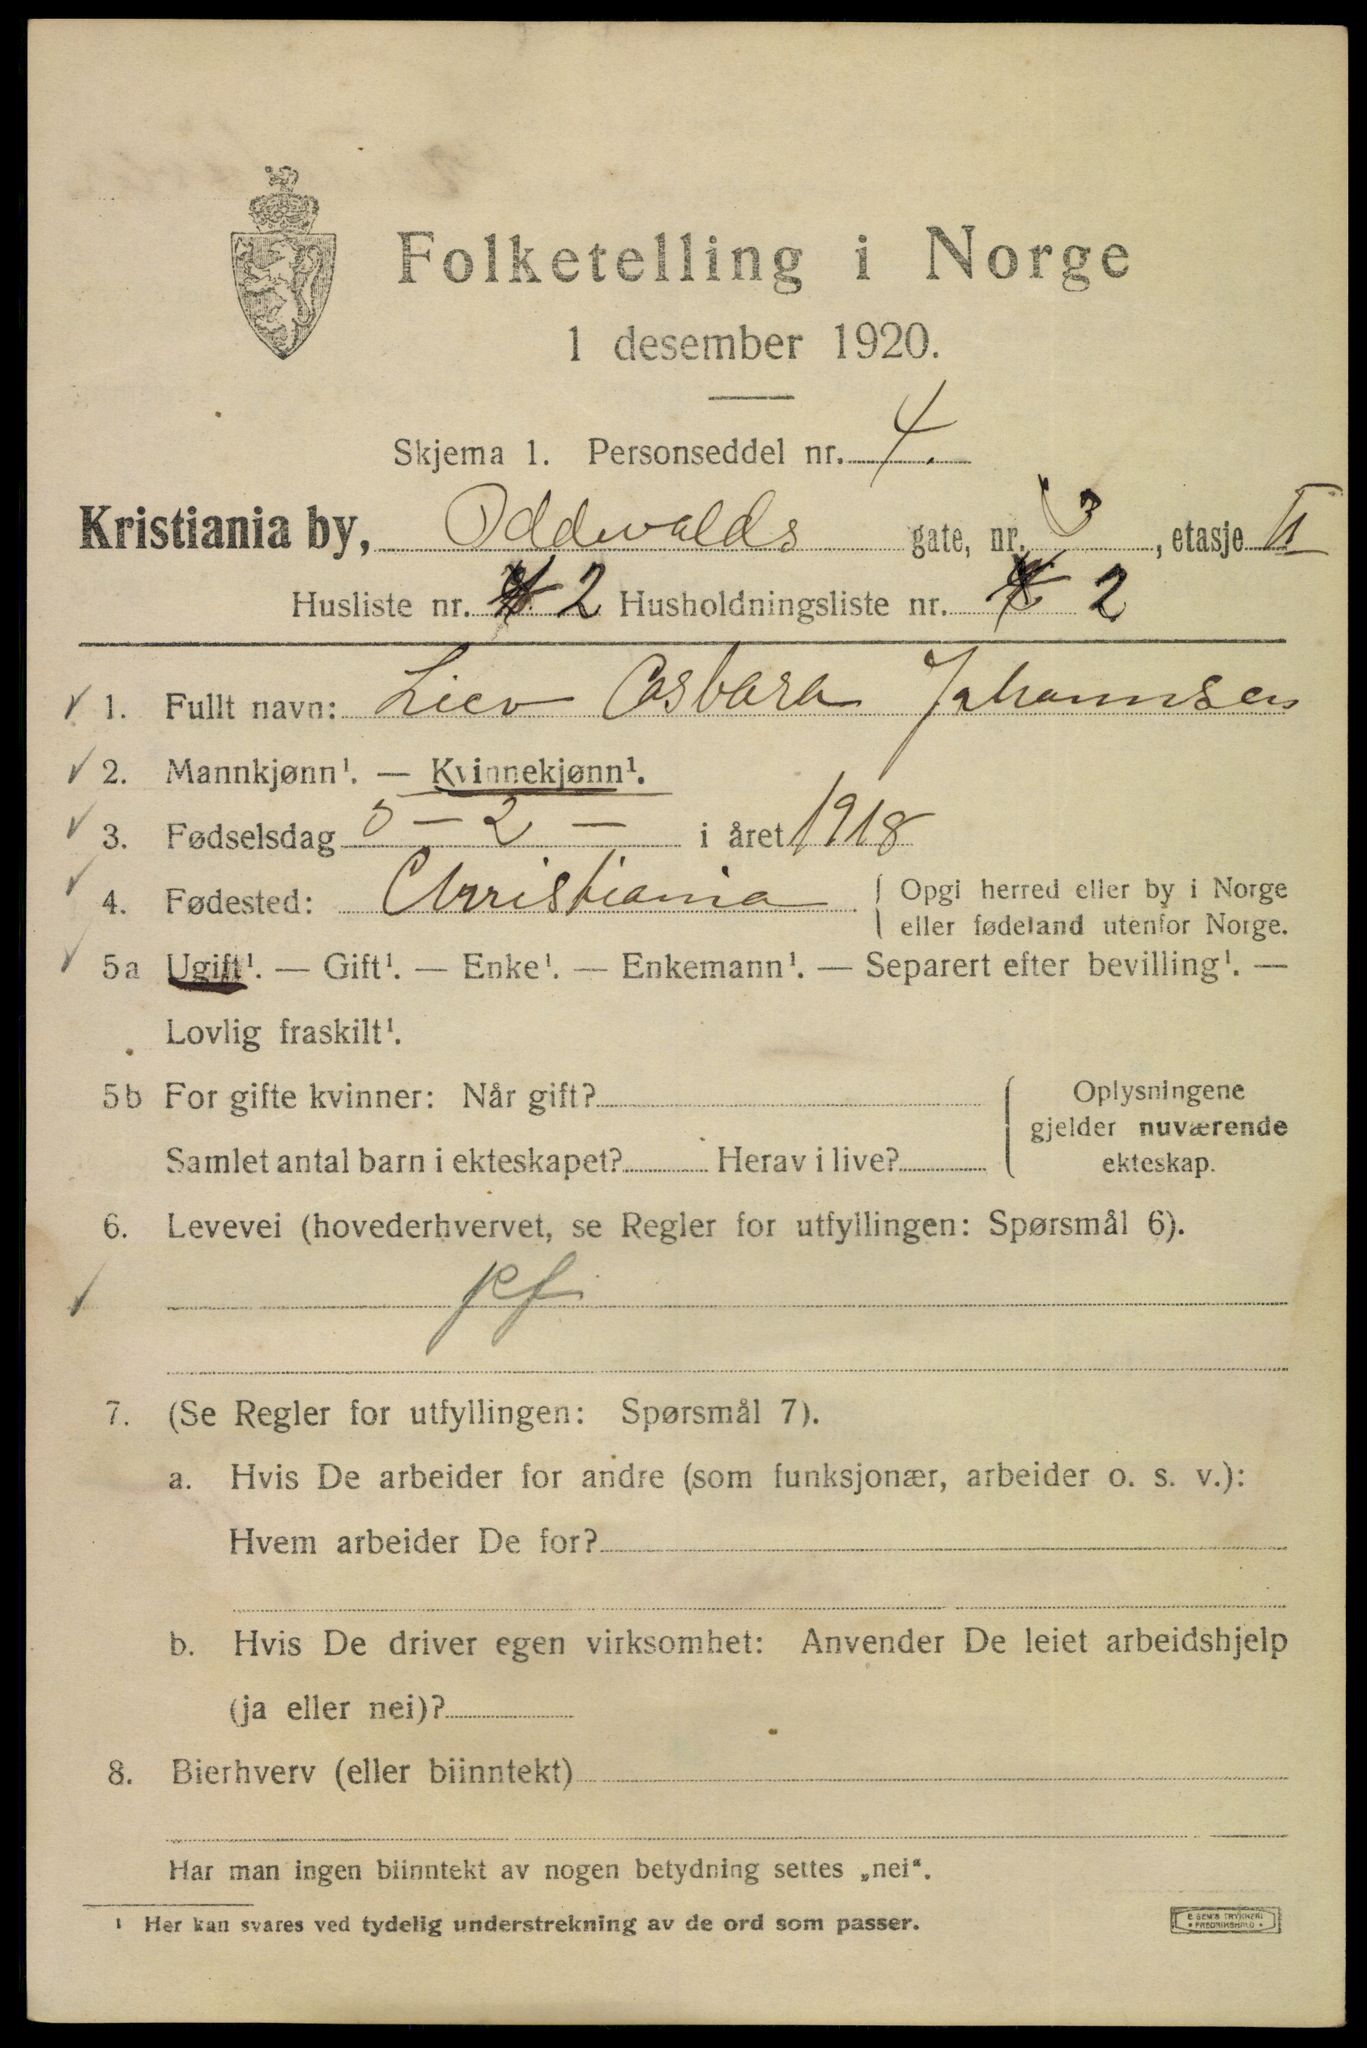 Folketelling i Norge
1 desember 1920.
Skjema 1. Personseddel nr. 4.
Kristiania by, Oddvalds gate, nr. 3, etasje II
Husliste nr. 2 Husholdningsliste nr. 2
1. Fullt navn: Liev Asbara Johannsen
2. Mannkjønn¹. — Kvinnekjønn¹.
3. Fødselsdag 5 - 2 - i året 1918
4. Fødested: Christiania { Opgi herred eller by i Norge
eller fødeland utenfor Norge.
5a Ugift¹. — Gift¹. — Enke¹. — Enkemann¹. — Separert efter bevilling¹. —
Lovlig fraskilt¹.
5b For gifte kvinner: Når gift? { Oplysningene
gjelder nuværende
Samlet antal barn i ekteskapet? Herav i live? ekteskap.
6. Levevei (hovederhvervet, se Regler for utfyllingen: Spørsmål 6).
pf
7. (Se Regler for utfyllingen: Spørsmål 7).
a. Hvis De arbeider for andre (som funksjonær, arbeider o. s. v.):
Hvem arbeider De for?
b. Hvis De driver egen virksomhet: Anvender De leiet arbeidshjelp
(ja eller nei)?
8. Bierhverv (eller biinntekt)
Har man ingen biinntekt av nogen betydning settes „nei“.
¹ Her kan svares ved tydelig understrekning av de ord som passer.
E. SEM'S TRYKKERI
• FREDRIKSHALD •